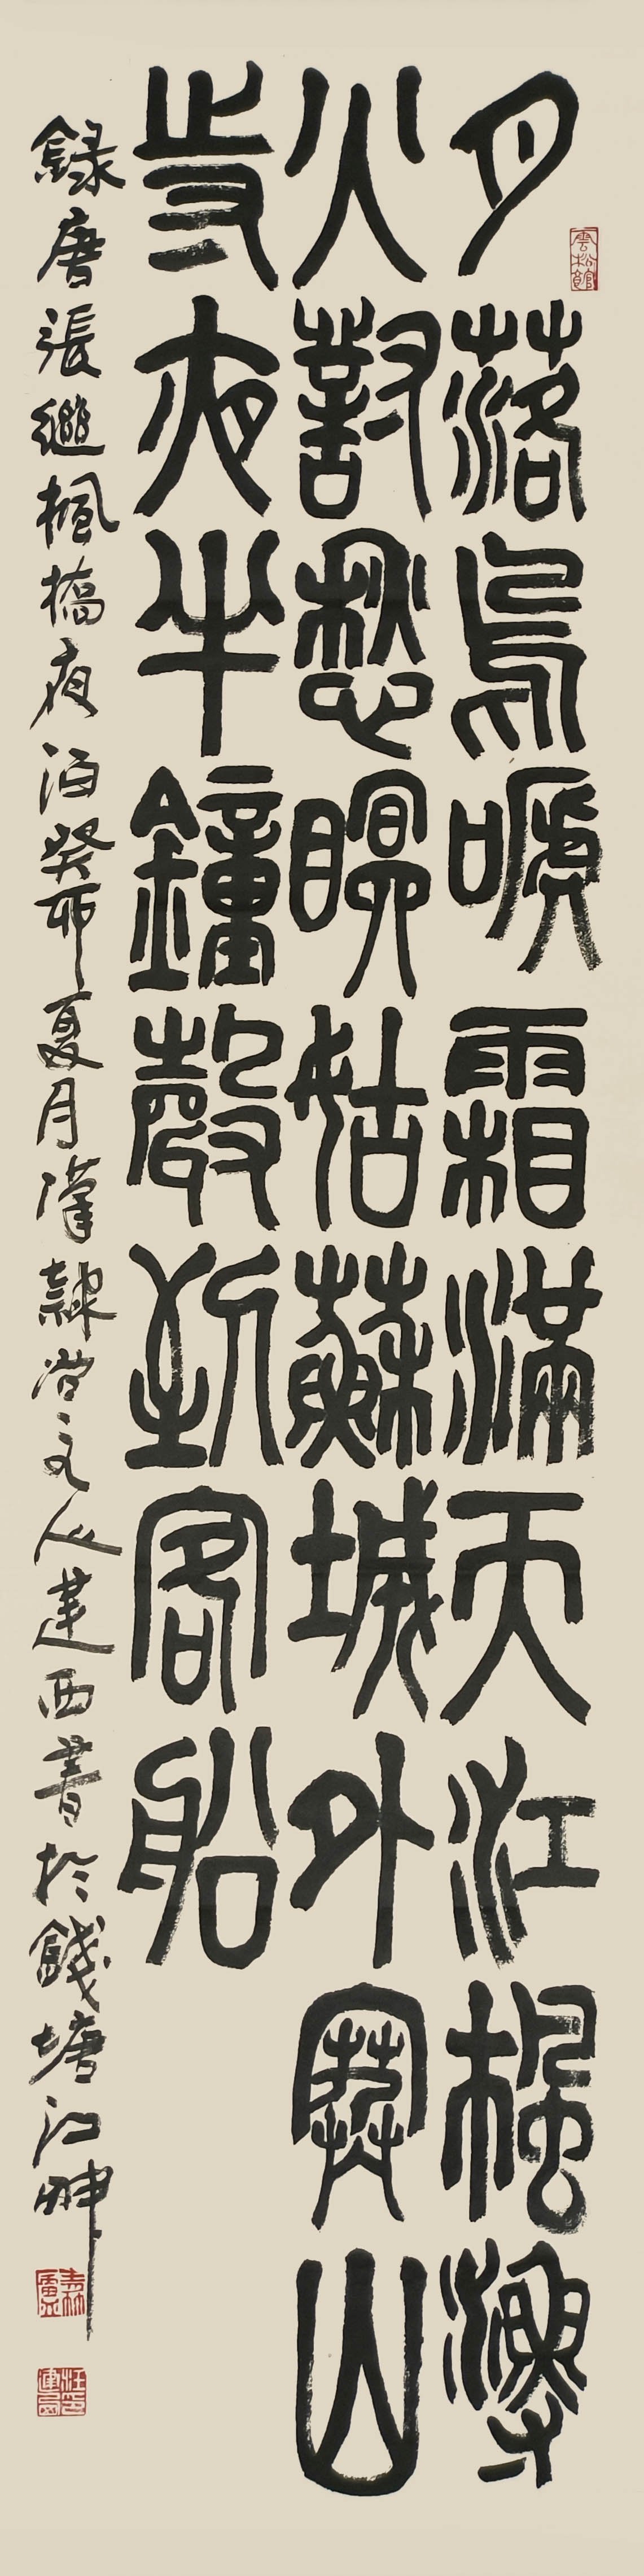 雲松館
月落烏嗁霜滿天江楓漁
火對愁眠姑蘇城外寒山
寺夜半鐘聲到客船
錄唐張繼楓橋夜泊癸卯夏月漢隸堂主人建西書於錢塘江畔